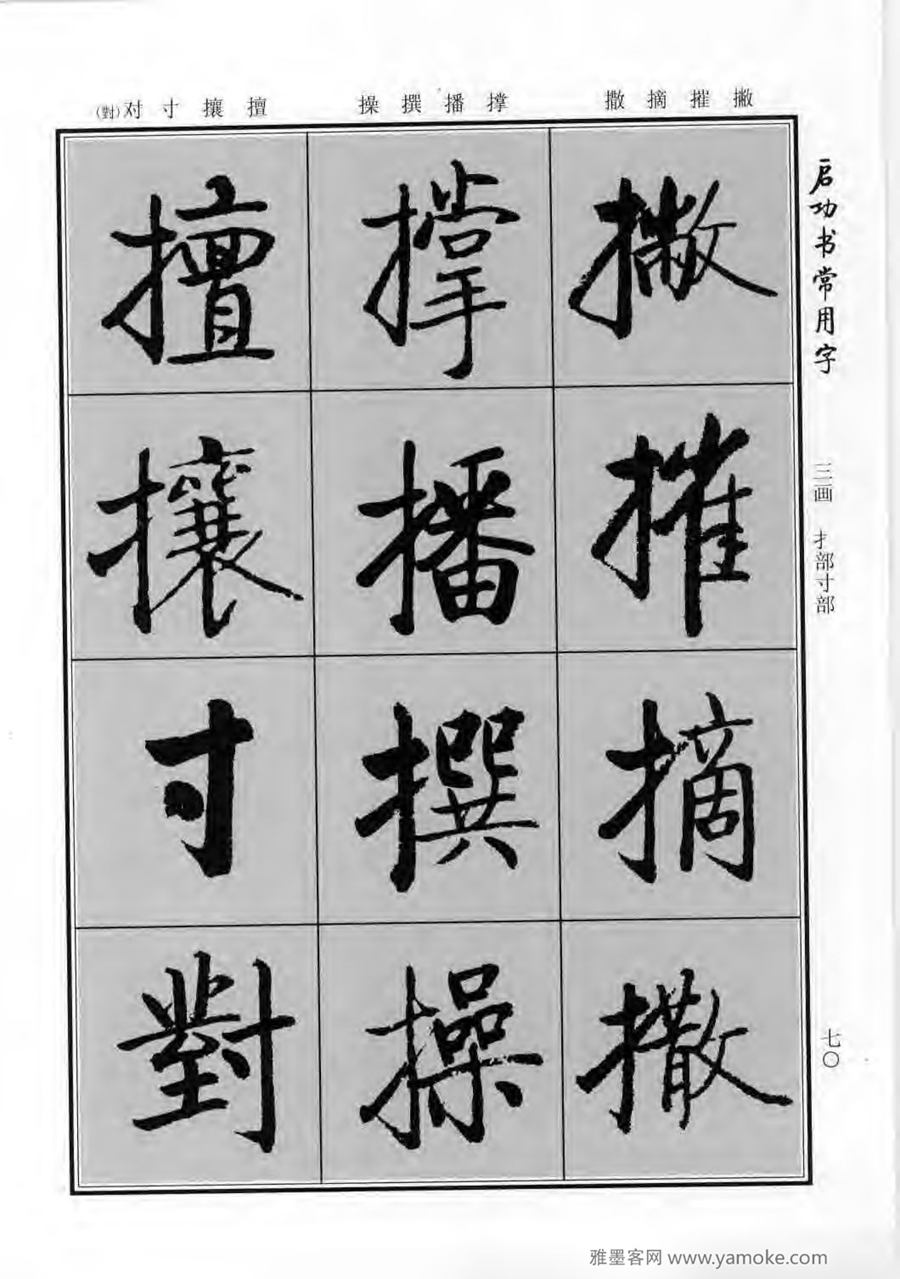 撇 摧 摘 撒
撑 播 撰 操
擅 攘 寸 对(對)
启功书常用字
三画 扌部寸部
七〇
撇摧摘撒
撑播撰操
擅攘寸對
雅墨客网 www.yamoke.com